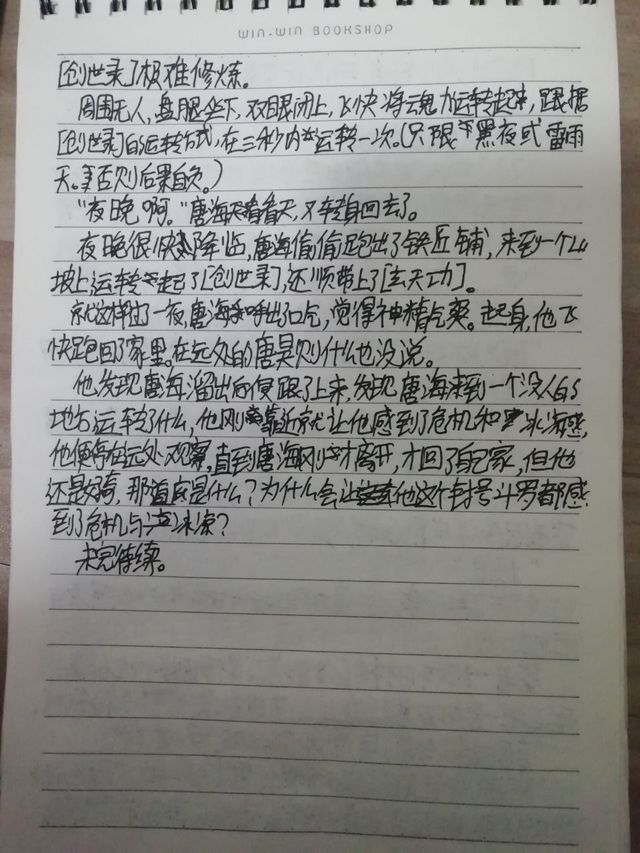 WIN-WIN BOOKSHOP
[创世录]极难修炼。
周围无人,盘腿坐下,双眼闭上,飞快将云魂力运转起来,跟据
[创世录]的运转方式,在三秒内运转一次。(只限黑夜或雷雨
天。否则后果自负。)
“夜晚啊。”唐海看看天,又转身回去了。
夜晚很快降临,唐海偷偷跑出了铁匠铺,来到一个山
坡上运转起了[创世录],还顺带上了[玄天功]。
就这样过了一夜,唐海呼出了口气,觉得神精气爽。起身,他飞
快跑回了家里。在远处的唐昊则什么也没说。
他发现唐海溜出而便跟了上来,发现唐海来到一个没人的
地方运转了什么,他刚靠近就让他感到了危机和冰凉感,
他便停在远处观察,直到唐海刚才离开,才回了自己家,但他
还是好奇,那道底是什么?为什么会让他这个封号斗罗都感
到了危机与冰凉?
未完待续。